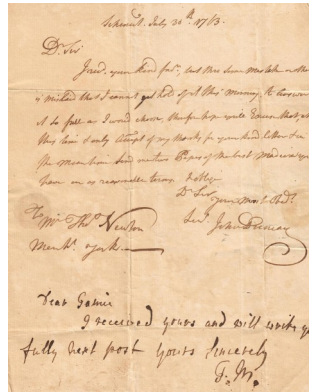 Schenect. July 30th 1763.
Dr Sir
I recd. your kind favr. last
mislaid that I cannot get hold of it this Morning, to Answer
it so full as I would choose, therefore hope you'll Excuse that at
this time & only Accept of my thanks for your kind letter & in
the mean time send me two Pipes of the best Madeira you
have on as reasonable terms & oblige
Dr Sir
your most Obedt.
Servt. John Duncan
To
Mr. Thos. Newton
Mercht. York
Dear Gamie
I received yours and will write you
fully next post yours Sincerely